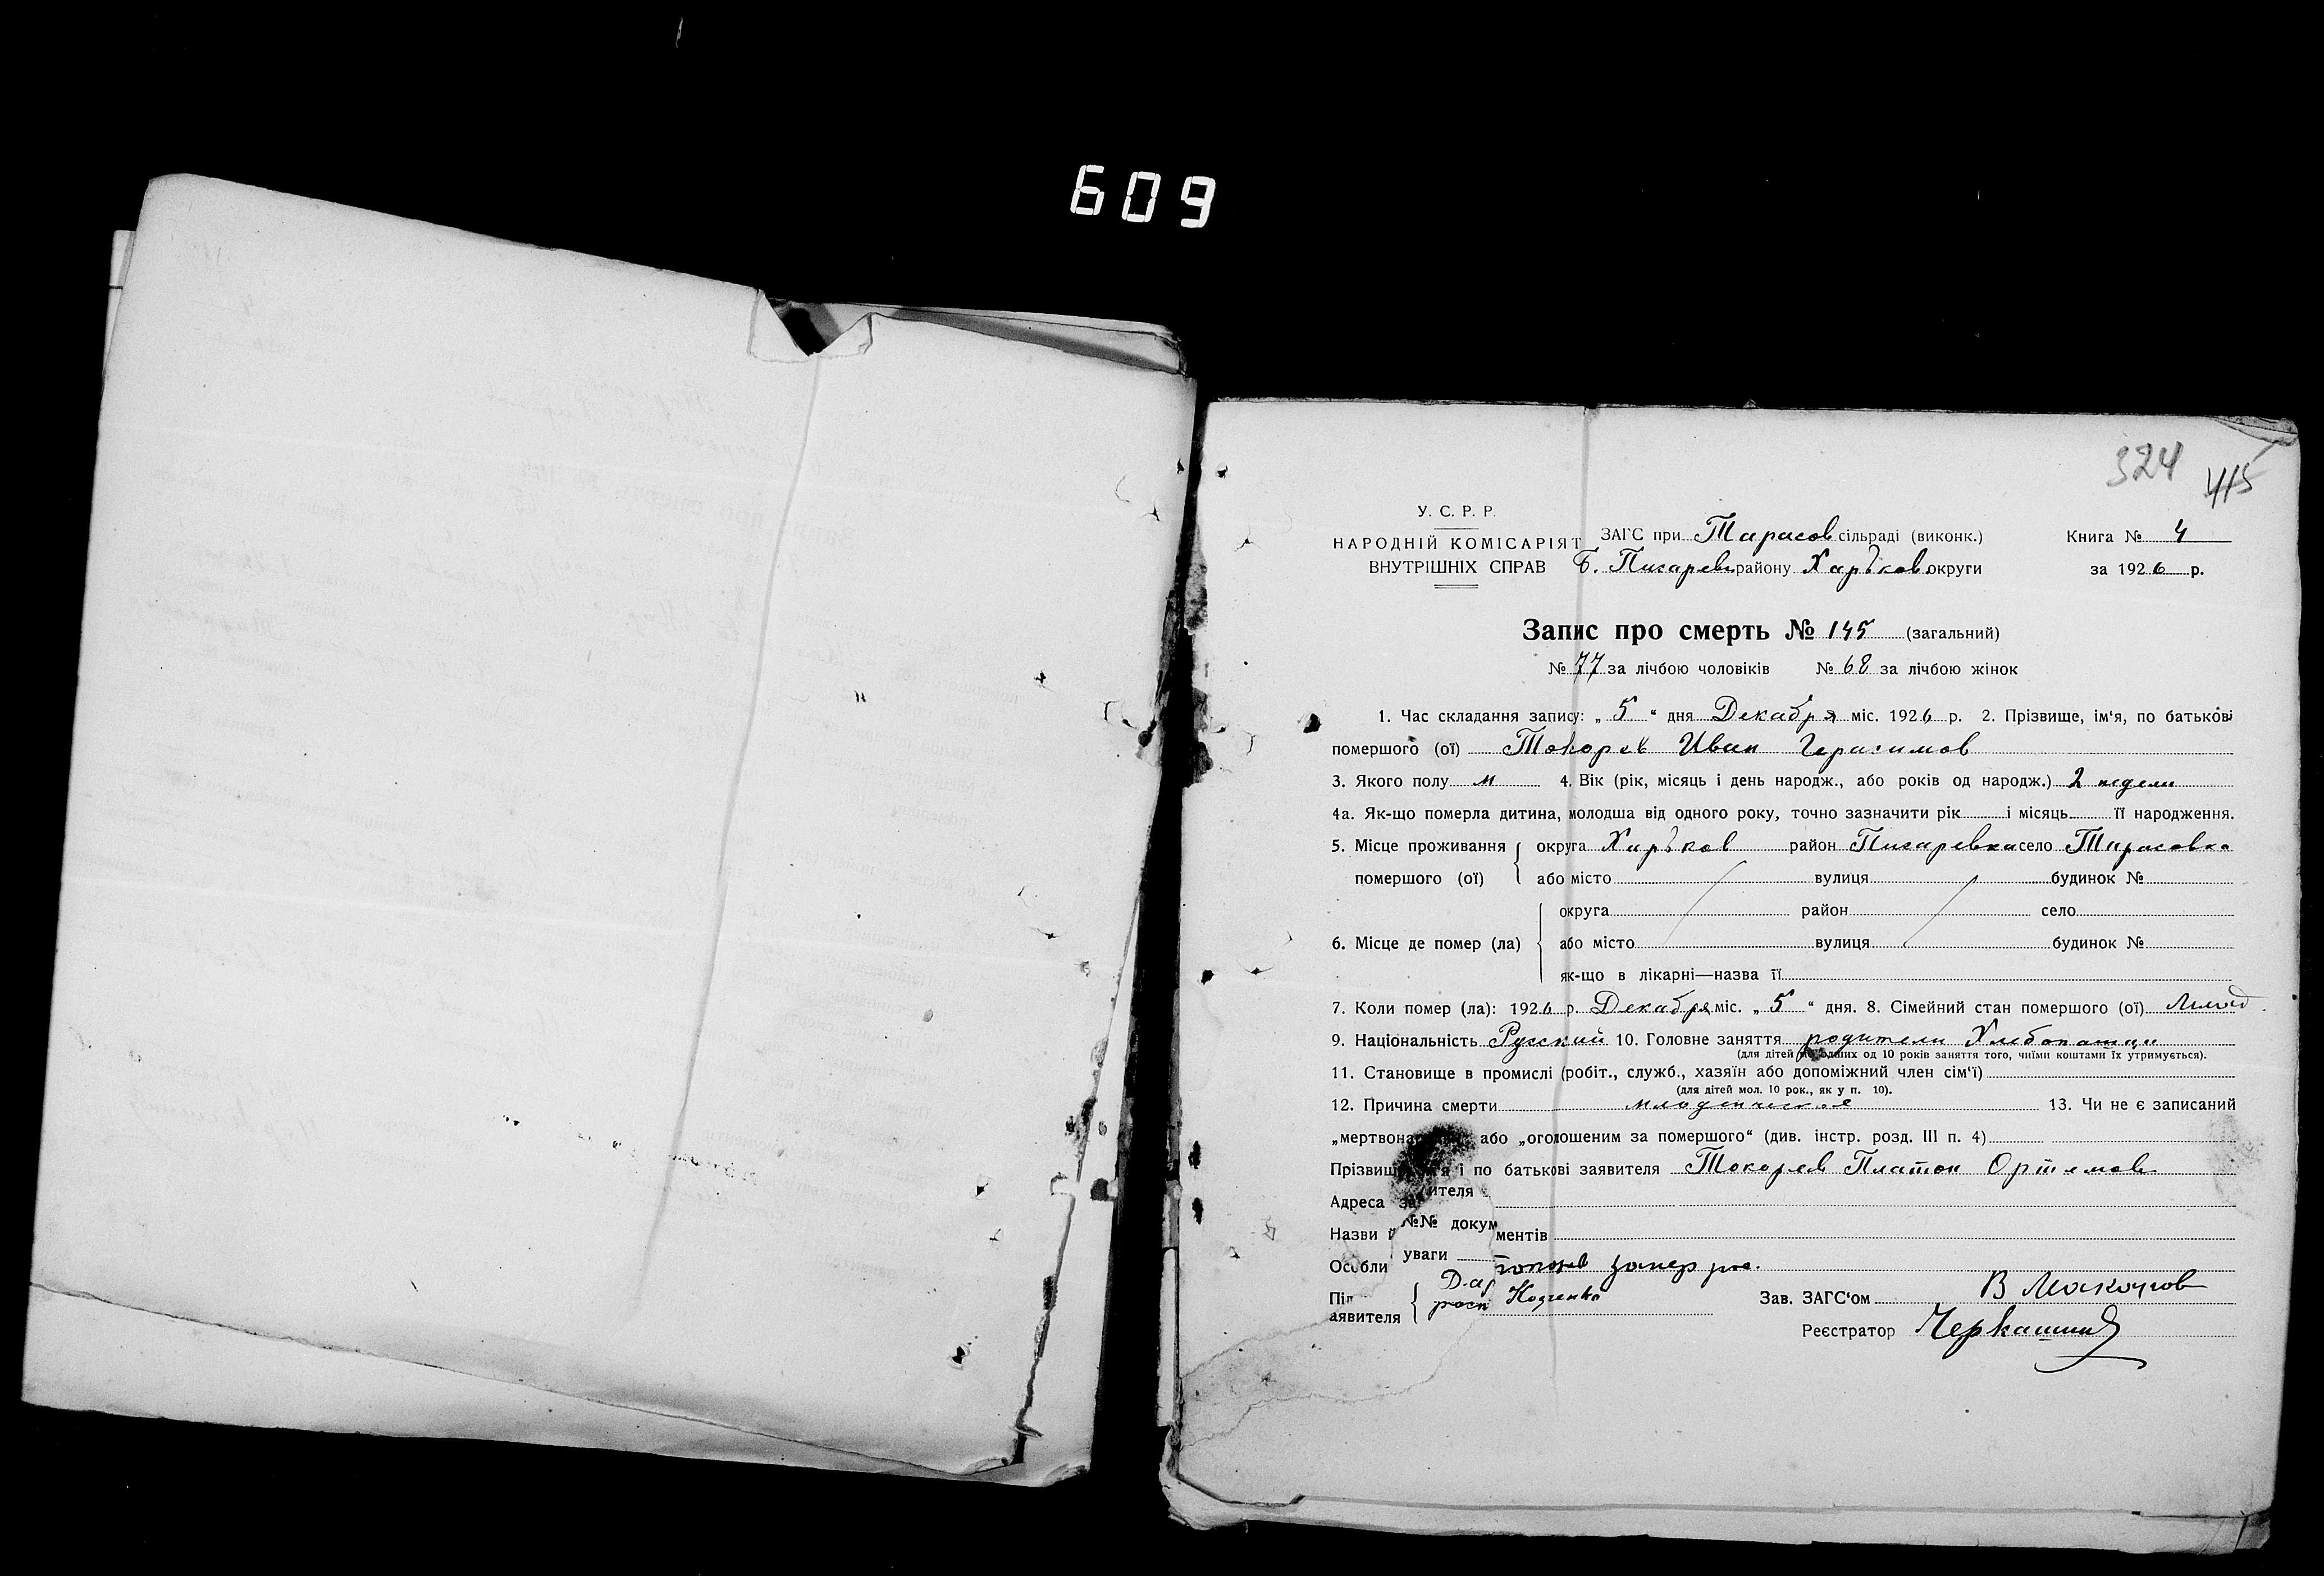 609
324
415
У. С. Р. Р.
НАРОДНІЙ КОМІСАРІЯТ
ВНУТРІШНІХ СПРАВ
ЗАГС при Тарасов сільраді (виконк.)
Б. Писаревк району Харьков округи
Книга № 4
за 1926 р.
Запис про смерть № 145 (загальний)
№ 77 за лічбою чоловіків № 68 за лічбою жінок
1. Час складання запису: „ 5 “ дня Декабря міс. 1926 р. 2. Прізвище, ім‘я, по батькові
помершого (ої) Токорев Иван Герасимов
3. Якого полу м 4. Вік (рік, місяць і день народж., або років од народж.) 2 недели
4а. Як-що померла дитина, молодша від одного року, точно зазначити рік і місяць її народження.
5. Місце проживання округа Харьков район Писаревка село Тарасовка
помершого (ої) або місто вулиця будинок №
округа район село
6. Місце де помер (ла) або місто вулиця будинок №
як-що в лікарні—назва її
7. Коли помер (ла): 1926 р. Декабря міс. „ 5 “ дня. 8. Сімейний стан помершого (ої)
9. Національність Русский 10. Головне заняття родители Хлебопашци
(для дітей молодших од 10 років заняття того, чиїми коштами їх утримується).
11. Становище в промислі (робіт., служб., хазяїн або допоміжний член сім‘ї)
(для дітей мол. 10 рок., як у п. 10).
12. Причина смерти младенческая 13. Чи не є записаний
„мертвона або „оголошеним за помершого“ (див. інстр. розд. III п. 4)
Прізвищ і по батькові заявителя Токорев Платон Ортемов
Адреса за ителя
Назви й №№ докум ментів
Особли уваги
Піп
аявителя
Зав. ЗАГС‘ом В Мокочов
Реєстратор Черкашин